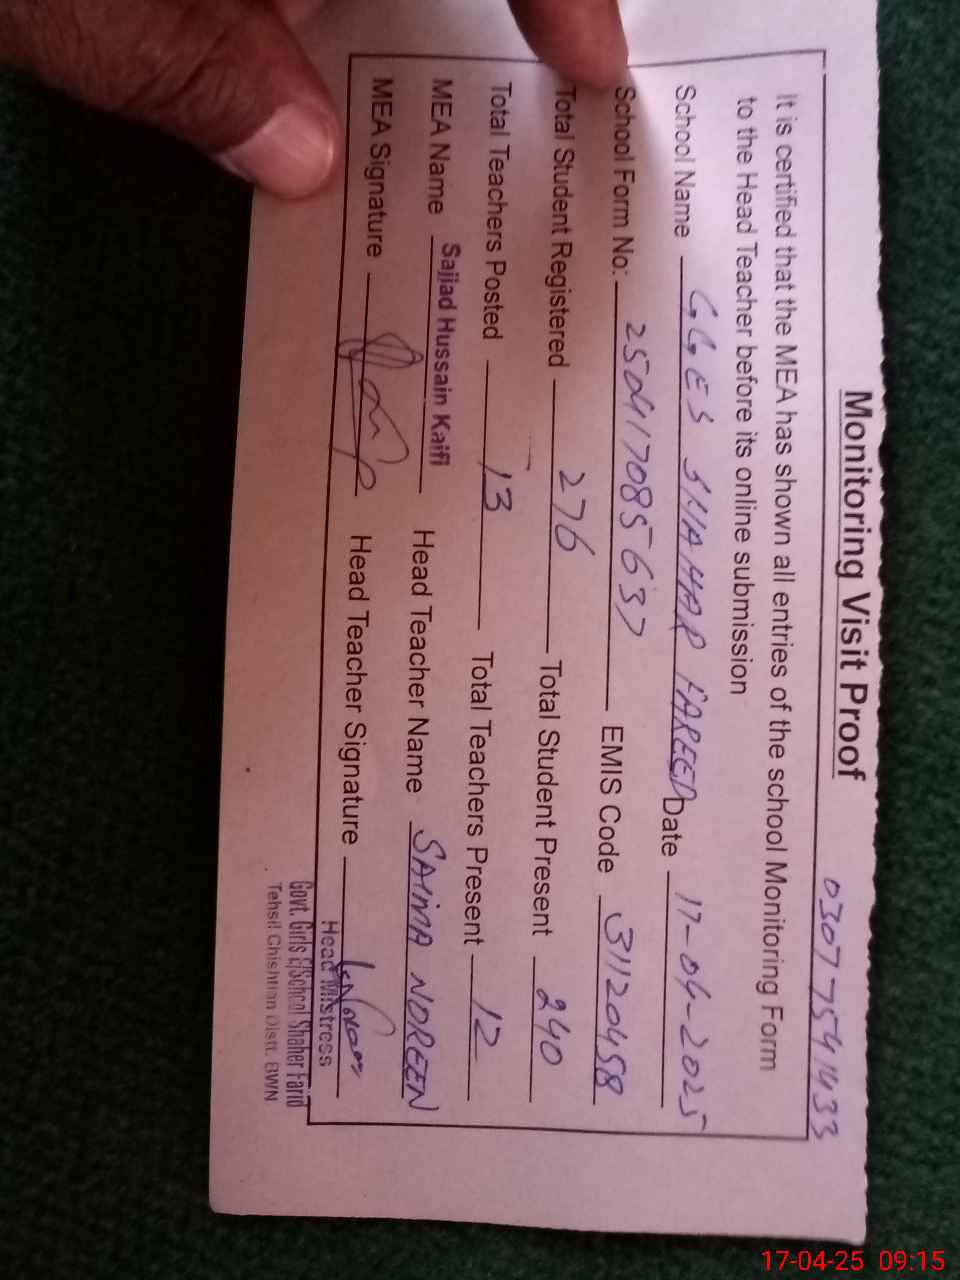 Monitoring Visit Proof
0307 7541433
It is certified that the MEA has shown all entries of the school Monitoring Form
to the Head Teacher before its online submission
School Name GGES SHAHAR FAREED Date 17-04-2025
School Form No: 250417085637 EMIS Code 31120458
Total Student Registered 276 Total Student Present 240
Total Teachers Posted 13 Total Teachers Present 12
MEA Name Sajjad Hussain Kaifi Head Teacher Name SAIMA NOREEN
MEA Signature Head Teacher Signature
Head Mistress
Govt. Girls E/School Shaher Farid
Tehsil Chishtian Distt. BWN
17-04-25 09:15